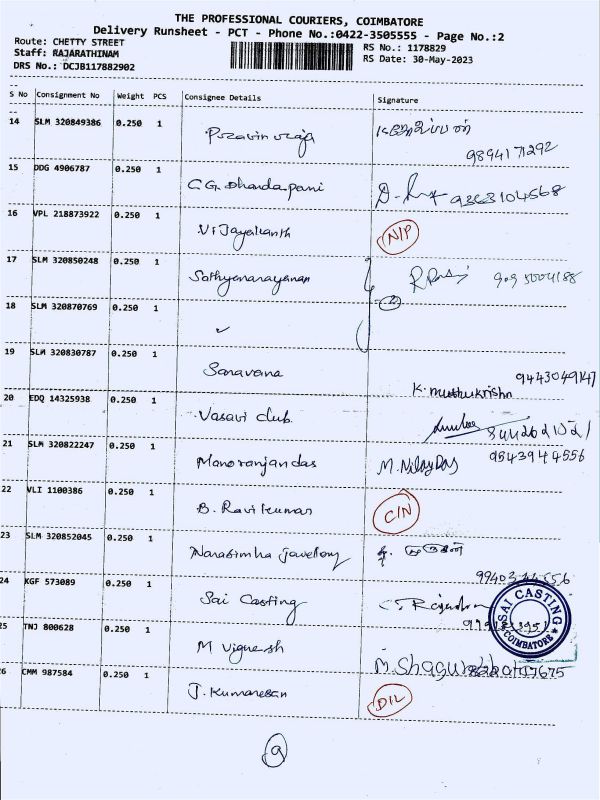 THE PROFESSIONAL COURIERS, COIMBATORE
Delivery Runsheet - PCT - Phone No.:0422-3505555 - Page No.:2
Route: CHETTY STREET
Staff: RAJARATHINAM
DRS No.: DCJB117882902
RS No.: 1178829
RS Date: 30-May-2023
S No Consignment No Weight PCS Consignee Details Signature
14 SLM 320849386 0.250 1 Pravin raja
9894171292
15 DDG 4906787 0.250 1 C.G. Dhandapani 9363104568
16 VPL 218873922 0.250 1 Vijayakanth N/P
17 SLM 320850248 0.250 1 Sathyanarayanan
2
18 SLM 320870769 0.250 1
19 SLM 320830787 0.250 1 Saravana K. muthukrishn 9443049147
20 EDQ 14325938 0.250 1 Vasavi club.
21 SLM 320822247 0.250 1 Manoranjandas M. Nilay Das 9543944556
22 VLI 1100386 0.250 1 B. Ravikumar C/N
23 SLM 320852045 0.250 1 Narasimha jewellery முருகன்
24 KGF 573089 0.250 1 Sai Casting
SAI CASTING
COIMBATORE
25 TNJ 800628 0.250 1 M Vignesh
26 CMM 987584 0.250 1 J. Kumaresan D/L
9